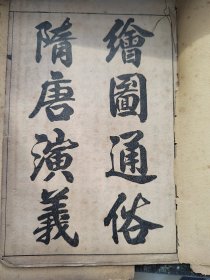 繪圖通俗
隋唐演義